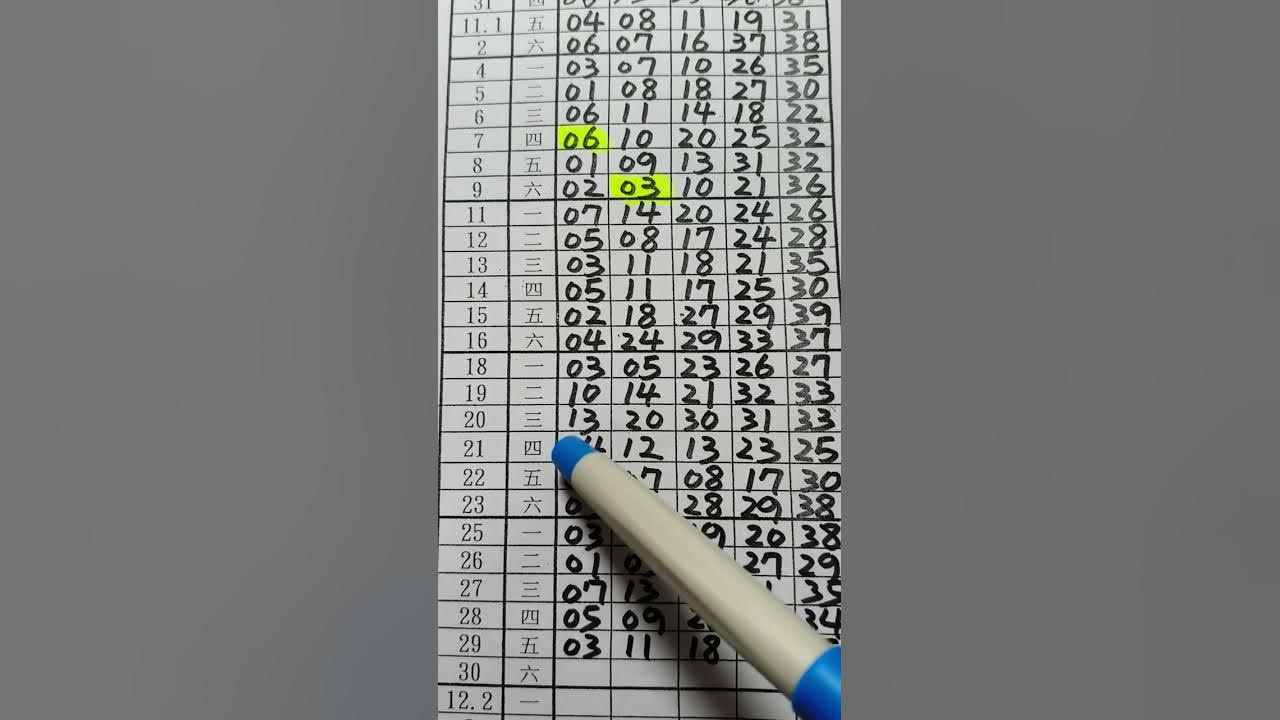 31 四
11.1 五 04 08 11 19 31
2 六 06 07 16 37 38
4 一 03 07 10 26 35
5 二 01 08 18 27 30
6 三 06 11 14 18 22
7 四 06 10 20 25 32
8 五 01 09 13 31 32
9 六 02 03 10 21 36
11 一 07 14 20 24 26
12 二 05 08 17 24 28
13 三 03 11 18 21 35
14 四 05 11 17 25 30
15 五 02 18 27 29 39
16 六 04 24 29 33 37
18 一 03 05 23 26 27
19 二 10 14 21 32 33
20 三 13 20 30 31 33
21 四 12 13 23 25
22 五 08 17 30
23 六 28 29 38
25 一 03 20 38
26 二 01 27 29
27 三 07 13 35
28 四 05 09 34
29 五 03 11 18
30 六
12.2 一